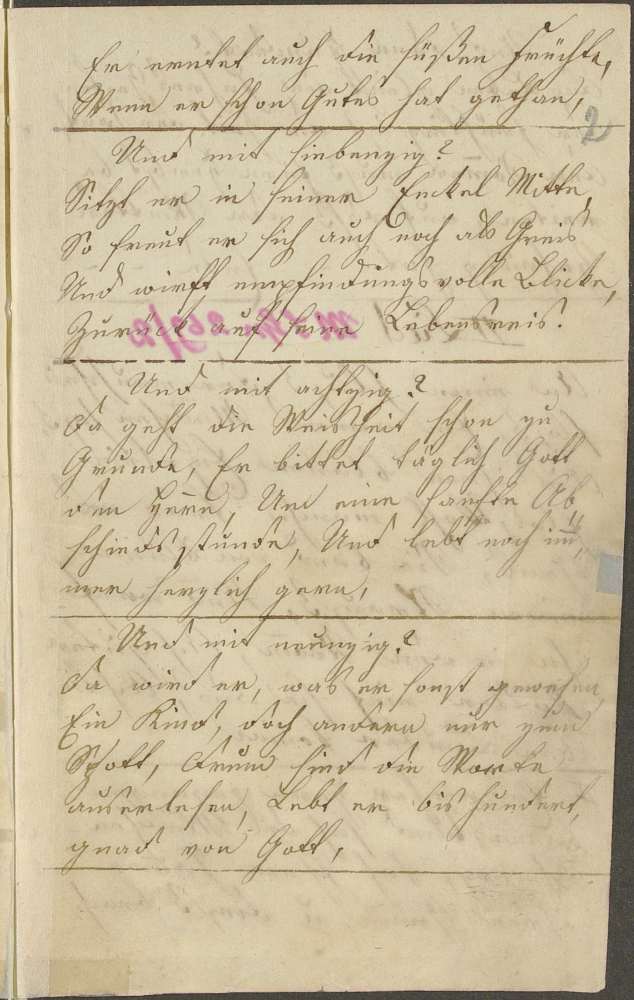 Er erntet auch die süßen Früchte,
Wenn er schon Gutes hat gethan,
2
Und mit siebenzig?
Sitzt er in seiner Enckel Mitte,
So freut er sich auch noch als Greis
Und wirft empfindungsvolle Blicke,
Zurück auf seine Lebensreis.
Und mit achtzig?
Da geht die Weisheit schon zu
Grunde, Er bittet täglich Gott
den Herrn, Um eine sanfte Ab
schieds stunde, Und lebt noch im̅,
mer herzlich gern,
Und mit neunzig?
Da wird er, was er sonst gewesen,
Ein Kind, doch andern nur zum
Spott, Drum sind die Worte
auserlesen, Lebt er bis hundert,
gnad von Gott,